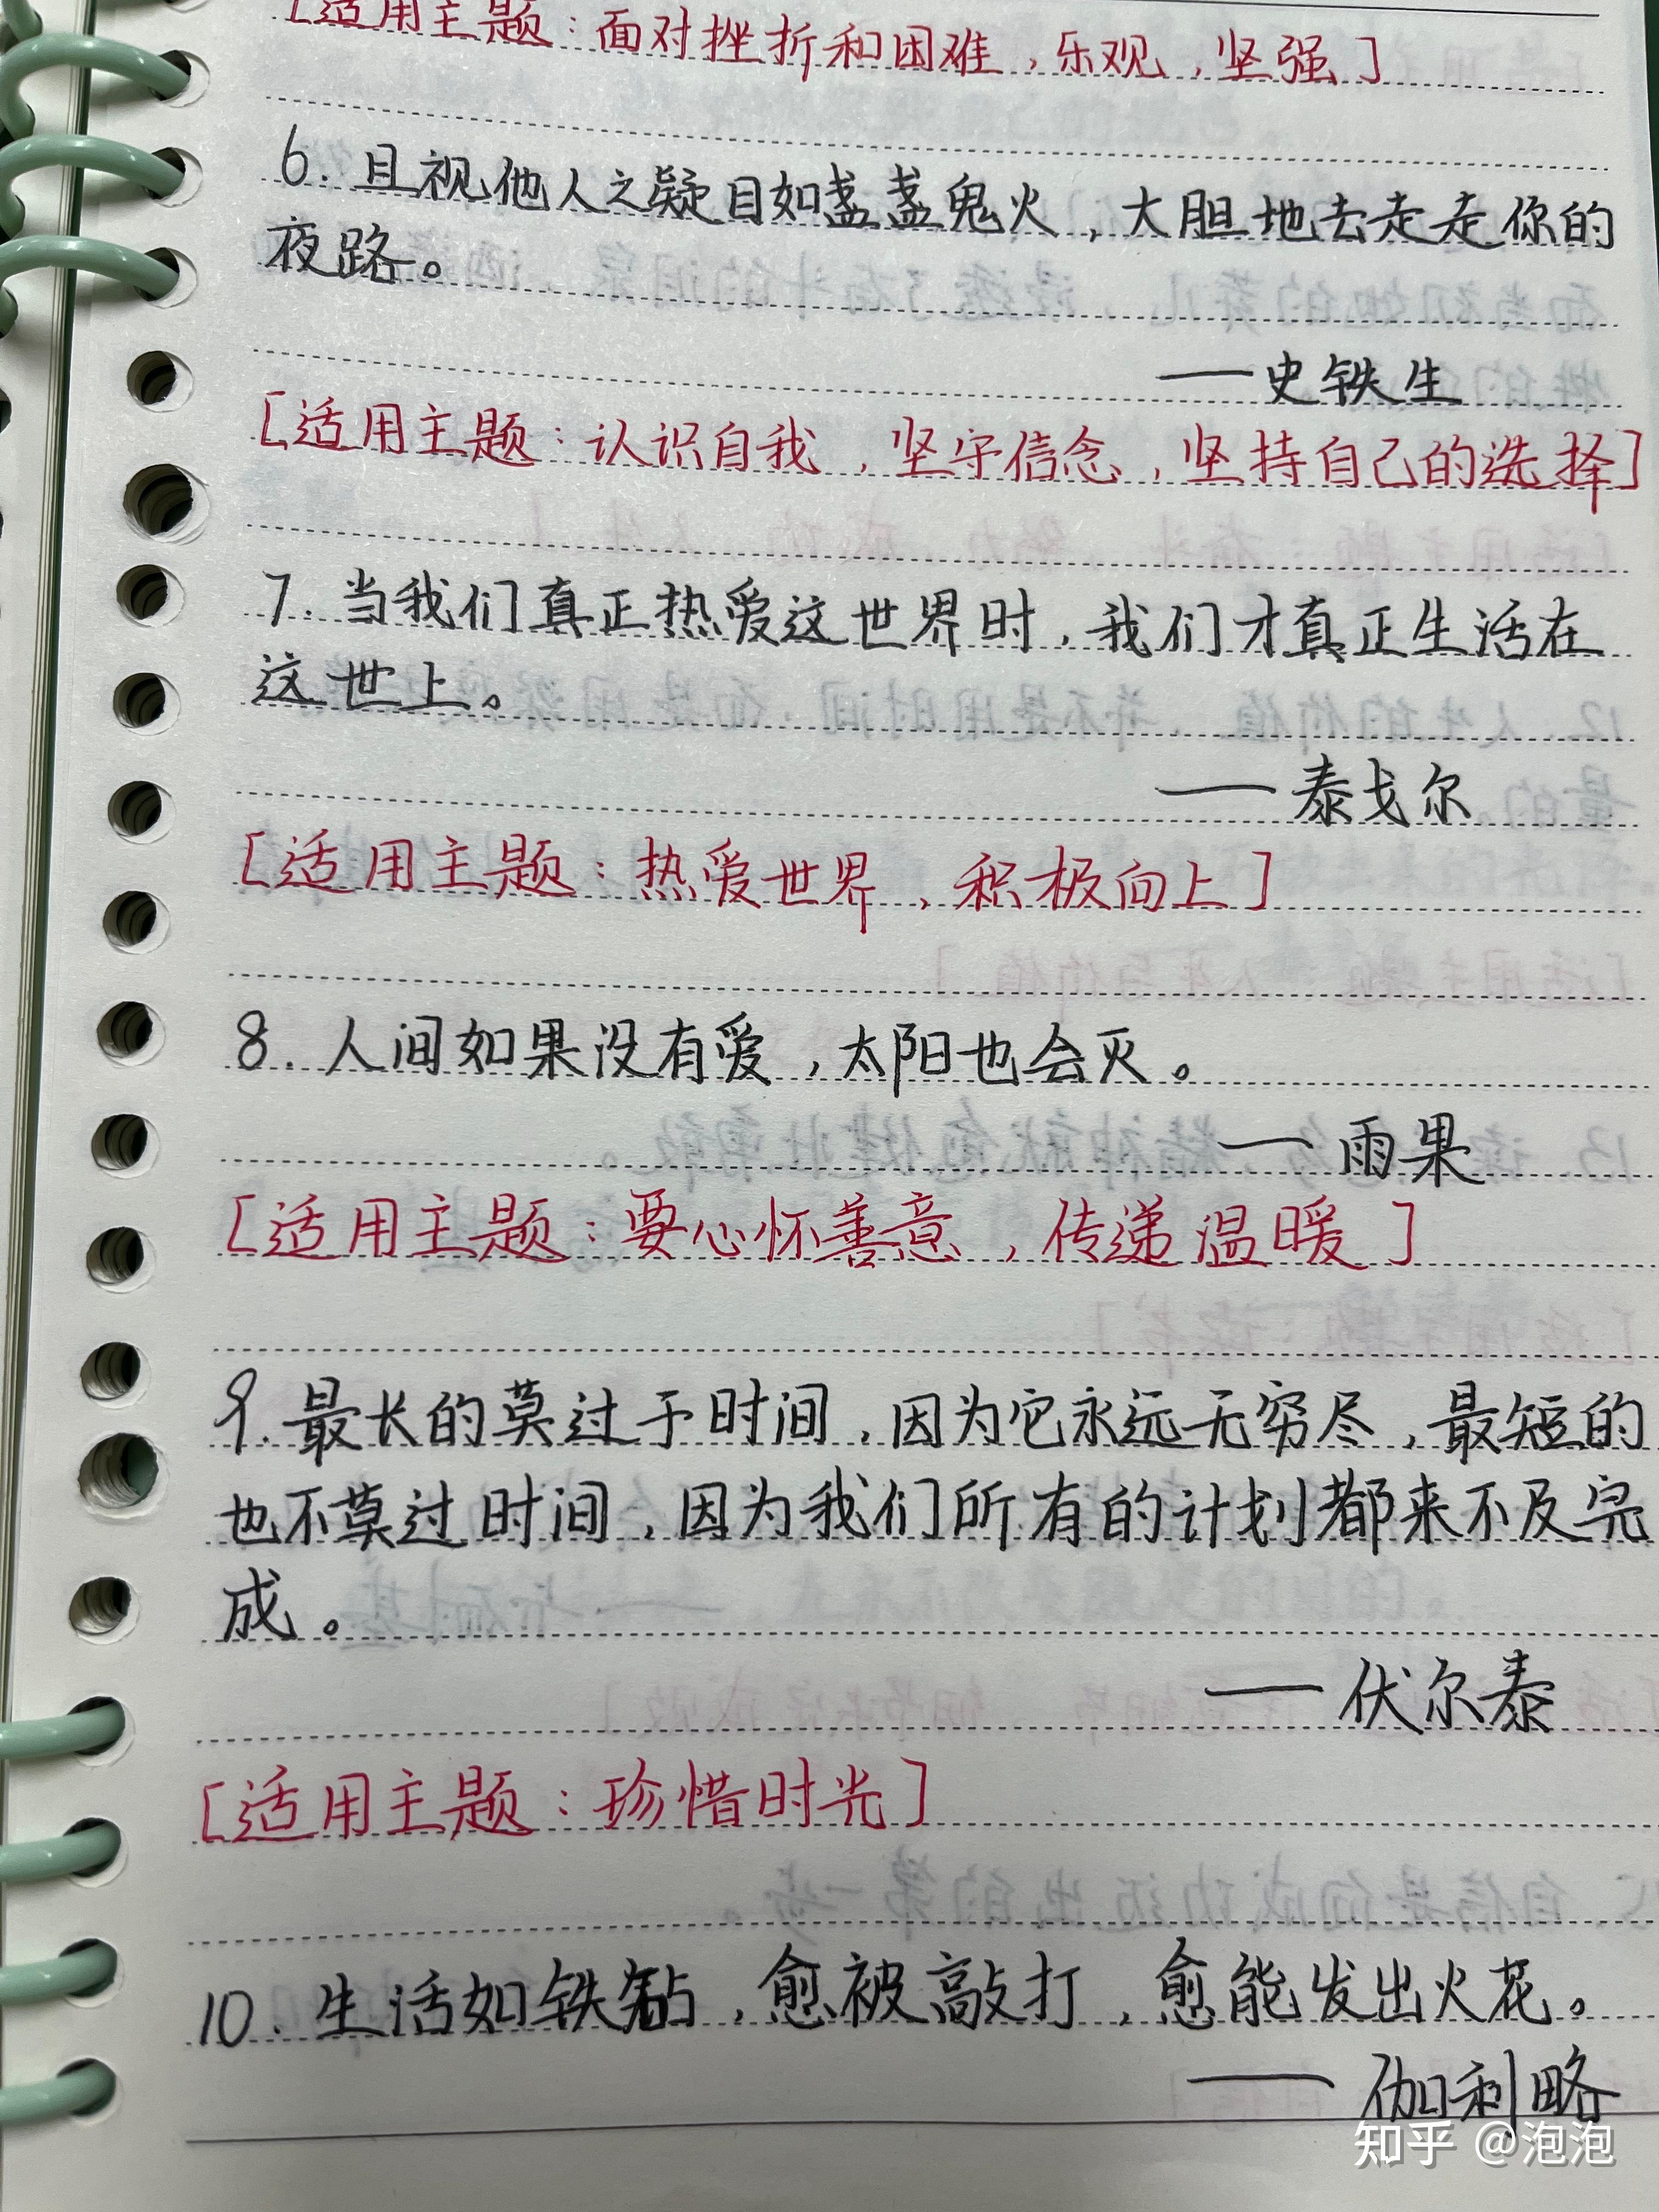 [适用主题：面对挫折和困难，乐观，坚强]
6. 且视他人之疑目如盏盏鬼火，大胆地去走走你的
夜路。
——史铁生
[适用主题：认识自我，坚守信念，坚持自己的选择]
7. 当我们真正热爱这世界时，我们才真正生活在
这世上。
——泰戈尔
[适用主题：热爱世界，积极向上]
8. 人间如果没有爱，太阳也会灭。
——雨果
[适用主题：要心怀善意，传递温暖]
9. 最长的莫过于时间，因为它永远无穷尽，最短的
也不莫过时间，因为我们所有的计划都来不及完
成。
——伏尔泰
[适用主题：珍惜时光]
10. 生活如铁砧，愈被敲打，愈能发出火花。
——伽利略
知乎 @泡泡